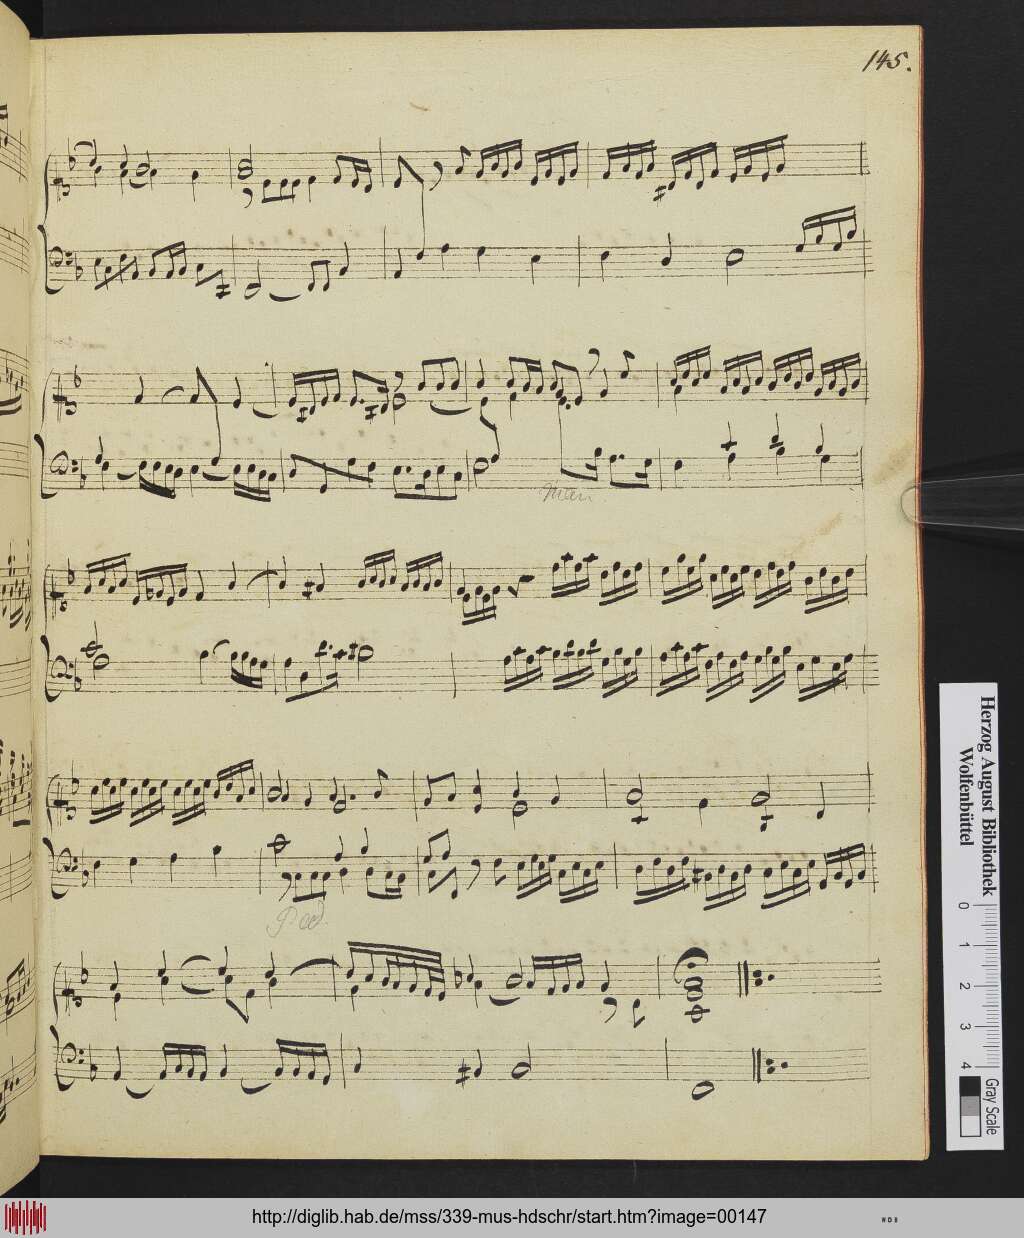 145.
Man.
Ped.
Herzog August Bibliothek
Wolfenbüttel
0 1 2 3 4
Gray Scale
http://diglib.hab.de/mss/339-mus-hdschr/start.htm?image=00147
WDB